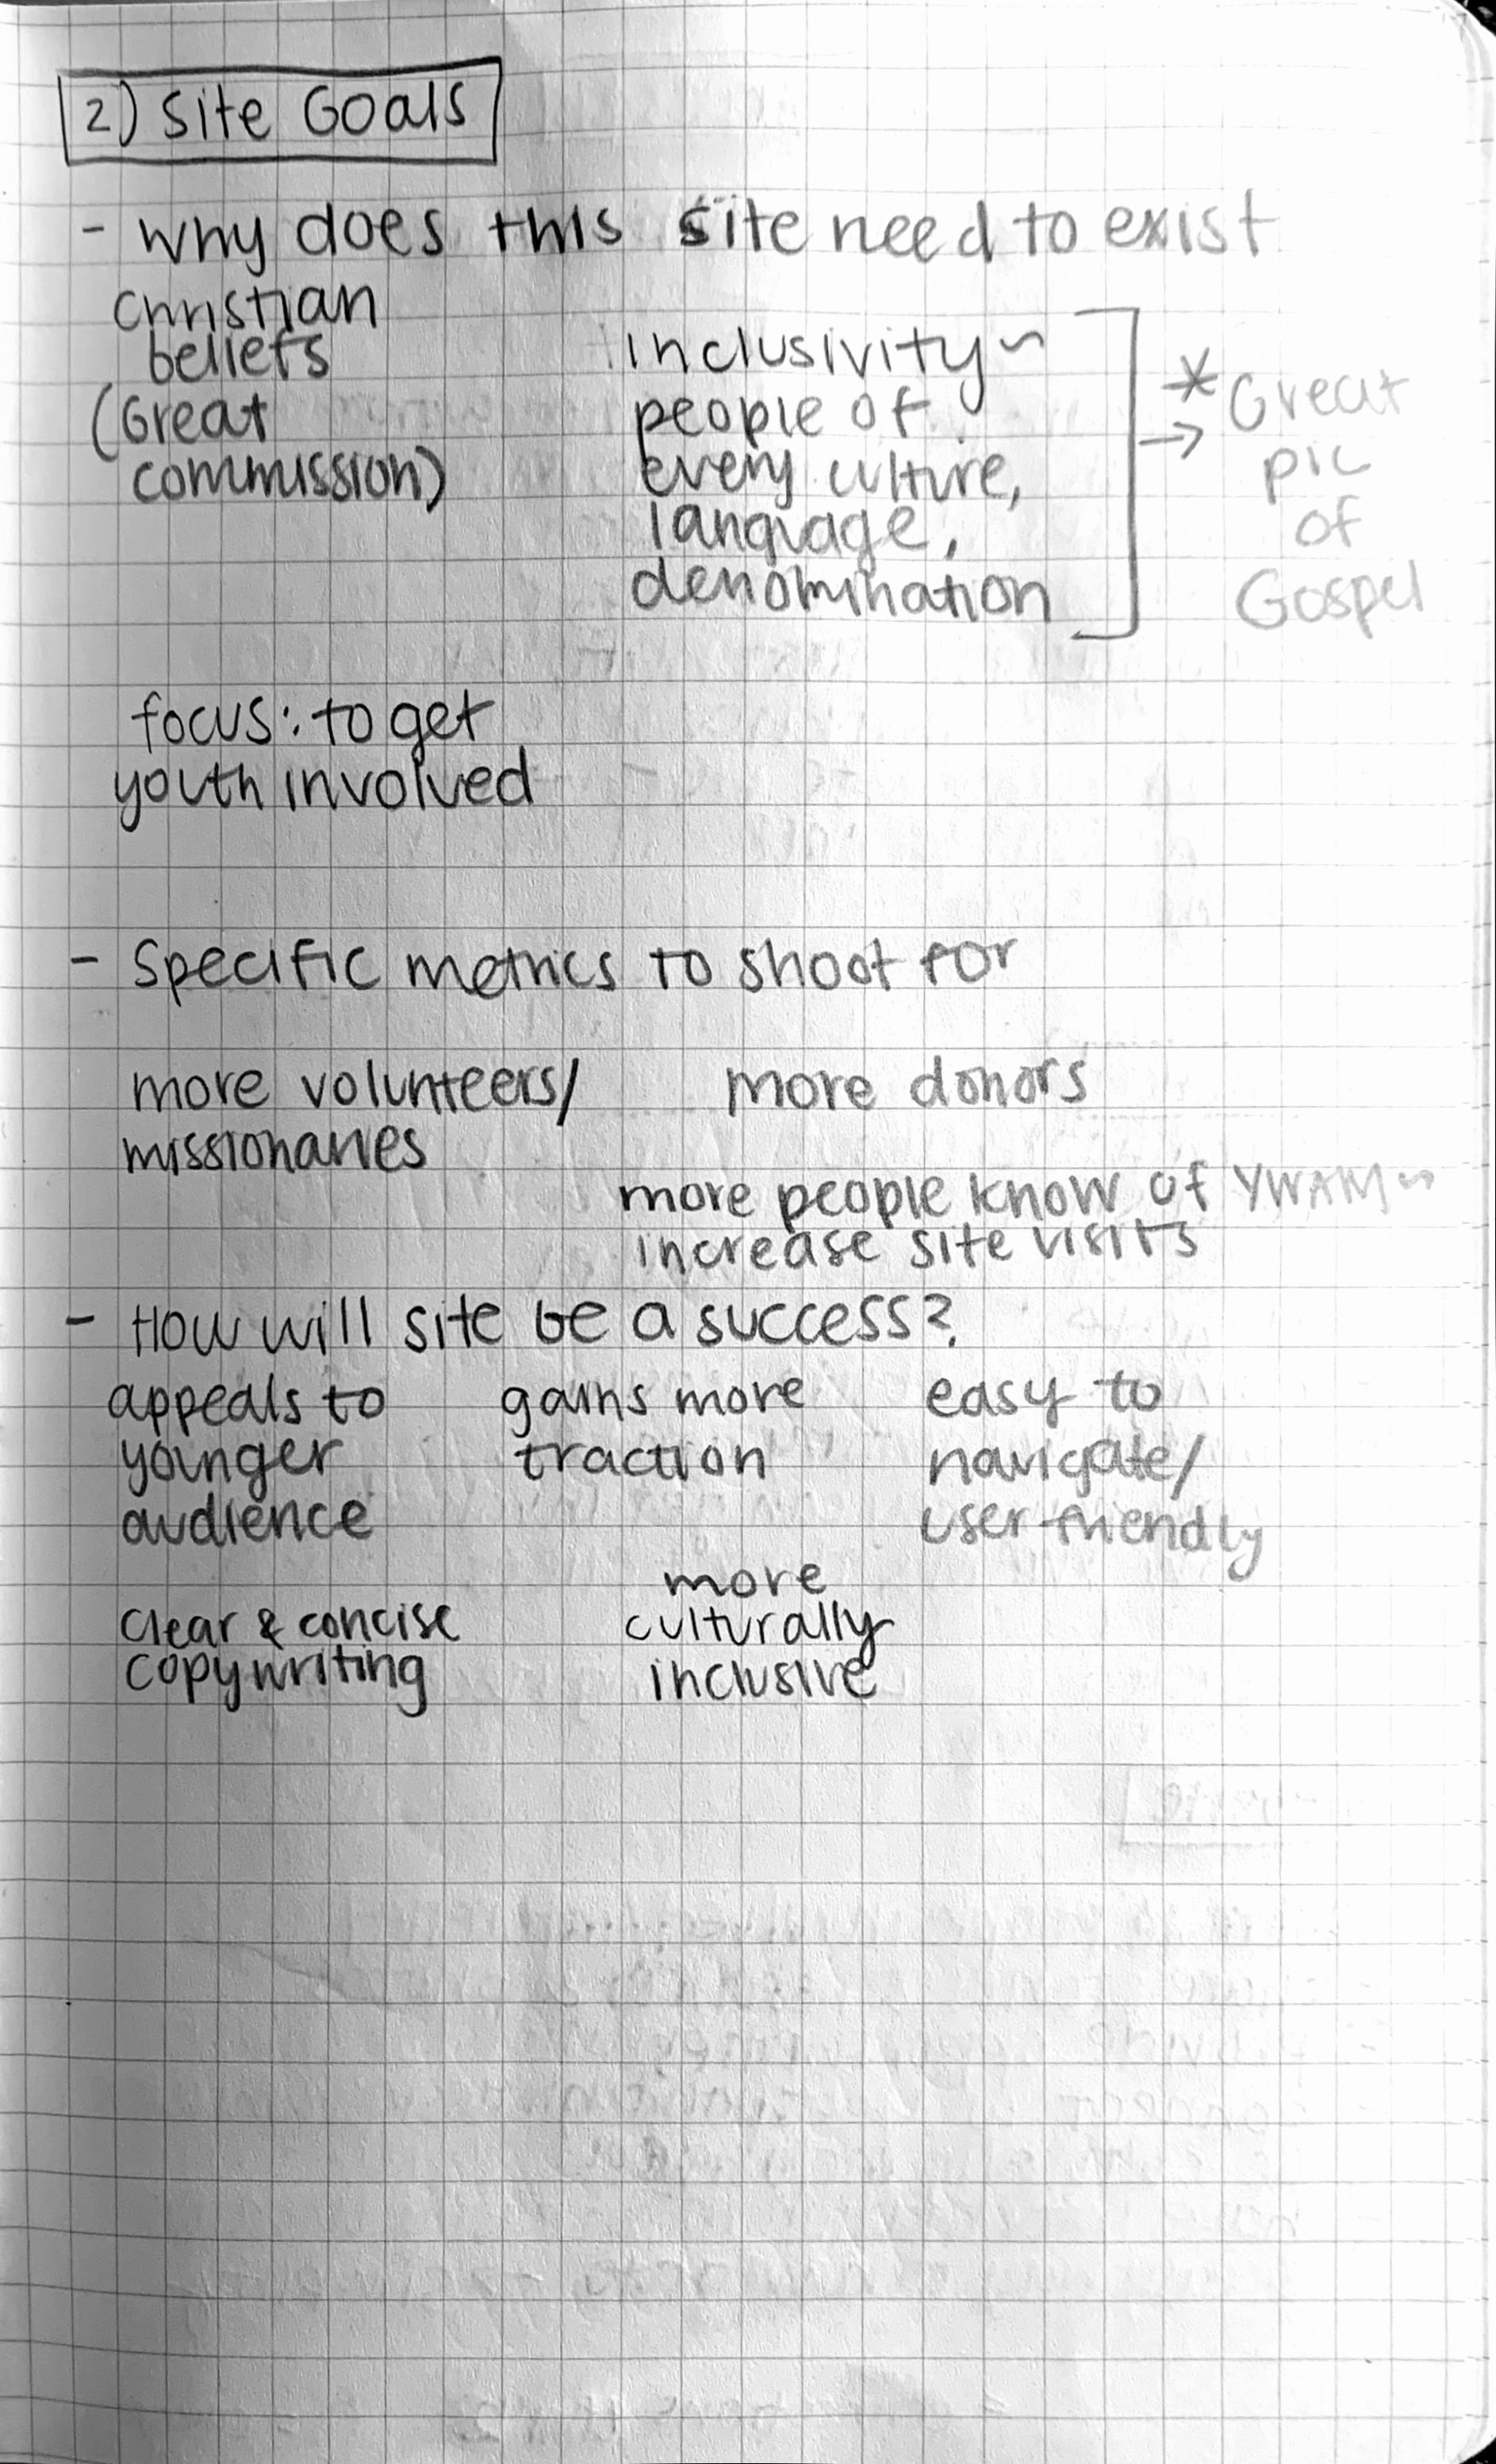 2) Site Goals
- Why does this site need to exist
Christian
beliefs
(Great
commission)
inclusivity~
people of
every culture,
language,
denomination
* Great
→ pic
of
Gospel
focus: to get
youth involved
- Specific metrics to shoot for
more volunteers/
missionaries
more donors
more people know of YWAM~
increase site visits
- How will site be a success?
appeals to
younger
audience
gains more
traction
easy to
navigate/
user friendly
clear & concise
copywriting
more
culturally
inclusive